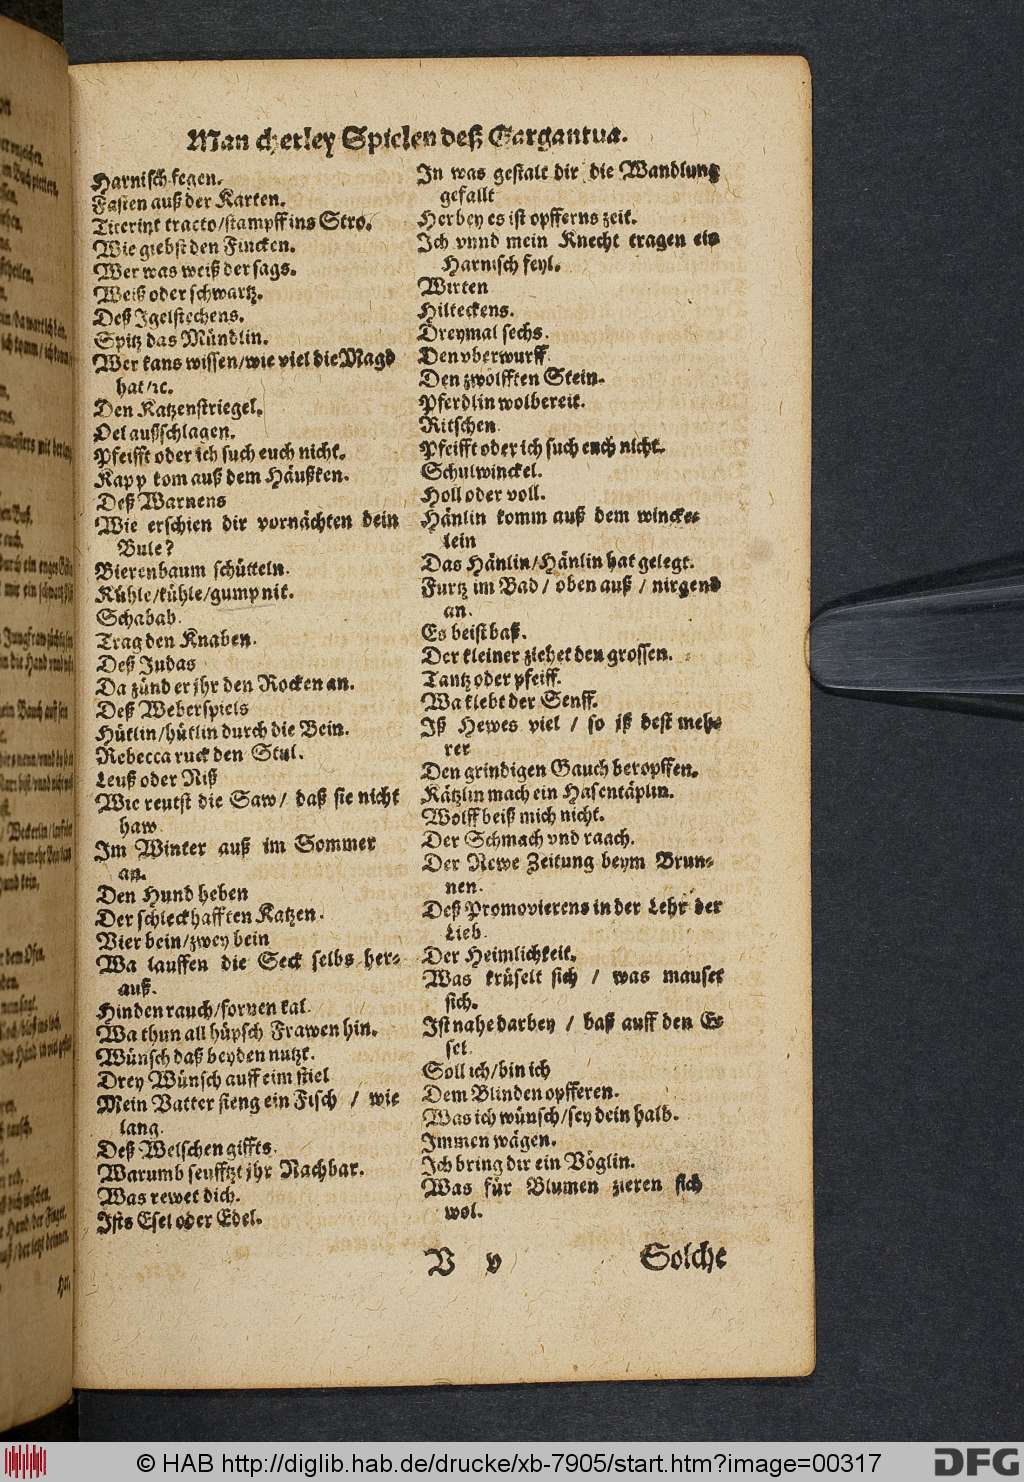 Man cherley Spielen deß Gargantua.
Harnisch fegen.
Fasten auß der Karten.
Titerintz tracto/stampff ins Stro.
Wie giebst den Fincken.
Wer was weiß der sags.
Weiß oder schwartz.
Deß Igelstechens.
Spitz das Mündlin.
Wer kans wissen/wie viel die Magd
hat/ꝛc.
Den Katzenstriegel.
Oel außschlagen.
Pfeifft oder ich such euch nicht.
Kapp kom auß dem Häußken.
Deß Warnens
Wie erschien dir vornächten dein
Bule?
Bierenbaum schütteln.
Kühle/kühle/gump nit.
Schabab.
Trag den Knaben.
Deß Judas
Da zünd er jhr den Rocken an.
Deß Weberspiels
Hütlin/hütlin durch die Bein.
Rebecca ruck den Stul.
Leuß oder Niß
Wie reutst die Saw/ daß sie nicht
haw
Im Winter auß im Sommer
an.
Den Hund heben
Der schleckhafften Katzen.
Vier bein/zwey bein
Wa lauffen die Seck selbs her-
auß.
Hinden rauch/fornen kal.
Wa thun all hüpsch Frawen hin.
Wünsch daß beyden nutzt.
Drey Wünsch auff eim stiel
Mein Vatter fieng ein Fisch / wie
lang.
Deß Welschen giffts.
Warumb seufftzt jhr Nachbar.
Was rewet dich.
Ists Esel oder Edel.
In was gestalt dir die Wandlung
gefallt
Herbey es ist opfferns zeit.
Ich vnnd mein Knecht tragen ein
Harnisch feyl.
Wirten
Hilteckens.
Dreymal sechs.
Den vberwurff
Den zwölfften Stein.
Pferdlin wolbereit.
Ritschen.
Pfeifft oder ich such euch nicht.
Schulwinckel.
Holl oder voll.
Hänlin komm auß dem wincke-
lein
Das Hänlin/Hänlin hat gelegt.
Furtz im Bad / oben auß / nirgend
an.
Es beist baß.
Der kleiner ziehet den grossen.
Tantz oder pfeiff.
Wa klebt der Senff.
Iß Hewes viel / so jß dest meh-
rer
Den grindigen Gauch beropffen.
Kätzlin mach ein Hasentäplin.
Wolff beiß mich nicht.
Der Schmach vnd raach.
Der Newe Zeitung beym Brun-
nen.
Deß Promovierens in der Lehr der
Lieb.
Der Heimlichkeit.
Was krüselt sich / was mauset
sich.
Ist nahe darbey / baß auff den E-
sel.
Soll ich/bin ich
Dem Blinden opfferen.
Was ich wünsch/sey dein halb.
Immen wägen.
Ich bring dir ein Vöglin.
Was für Blumen zieren sich
wol.
V v
Solche
© HAB http://diglib.hab.de/drucke/xb-7905/start.htm?image=00317
DFG